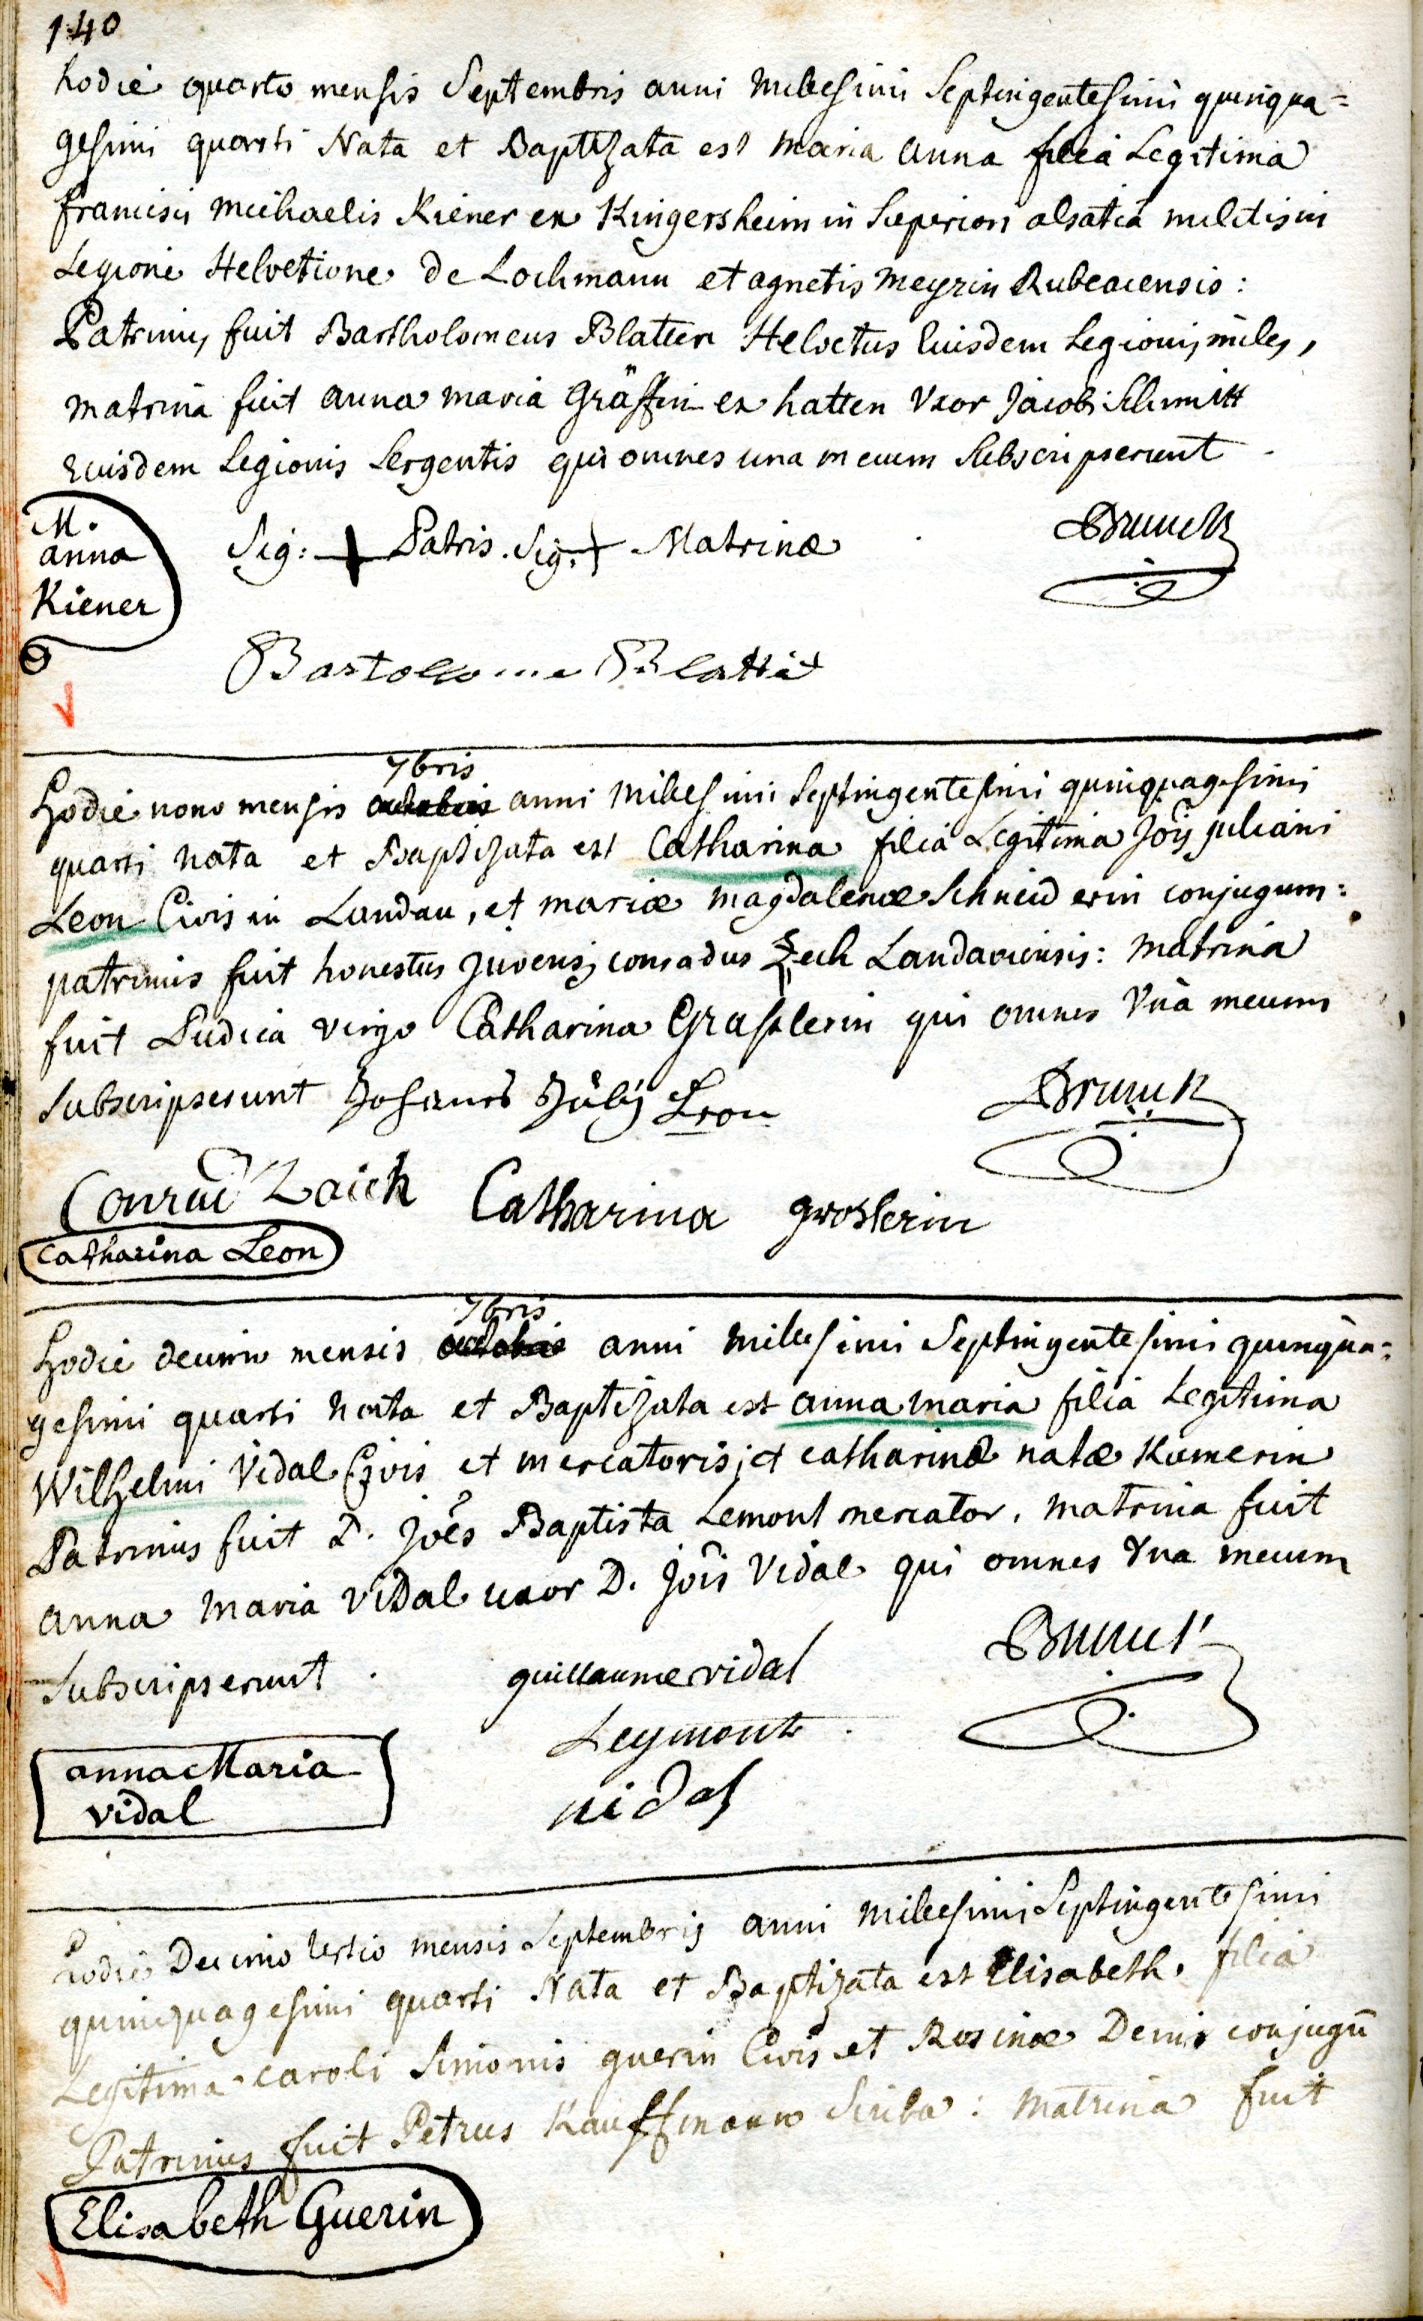 140
hodie quarto mensis Septembris anni millesimi Septingentesimi quinqua=
gesimi quarti Nata et Baptizata est maria anna filia Legitima
francisci michaelis Kiener ex Kingersheim in Superiori alsatia militis in
Legione Helvetione de Lochmann et agnetis meyrin Rubeacensis:
Patrinus fuit Bartholomeus Blatter Helvetus Euisdem Legionis miles,
matrina fuit anna maria Gräffin ex hatten Vxor Jacobi Schmitt
Euisdem Legionis Sergentis qui omnes una mecum Subscripserunt
M.
anna
Kiener
Sig: + Patris. Sig. + Matrinæ
Brunck
Bartolome Blatter
7bris
Hodie nono mensis octobris anni millesimi Septingentesimi quinquagesimi
quarti nata et Baptizata est Catharina filia Legitima Jois juliani
Leon Civis in Landau, et mariæ magdalenæ Schneiderin conjugum:
patrinus fuit honestus juvenis conradus Zech Landaviensis: matrina
fuit Pudica virgo Catharina Grasslerin qui omnes Vna mecum
Subscripserunt Johanes Julij Leon
Brunck
Conrad Zaich Catharina groslerin
Catharina Leon
7bris
Hodie decimo mensis octobris anni millesimi Septingentesimi quinqua=
gesimi quarti nata et Baptizata est anna maria filia Legitima
Wilhelmi Vidal Civis et mercatoris, et catharinæ natæ Kamerin
Patrinus fuit D. joes Baptista Lemont mercator. matrina fuit
anna maria vidal uxor D. jois Vidal qui omnes Vna mecum
Subscripserunt.
guillaume vidal
Brunck
Leymont
vidal
anna Maria
vidal
hodie Decimo tertio mensis Septembris anni millesimi Septingentesimi
quinquagesimi quarti Nata et Baptizata est Elisabeth. filia
Legitima caroli Simonis guerin Civis et Rosinæ Denis conjugū
Patrinus fuit Petrus Kauffmann Scriba: matrina fuit
Elisabeth Guerin